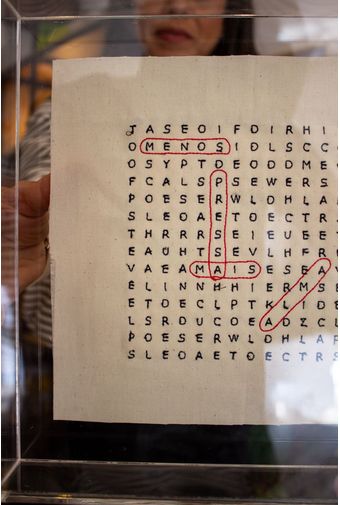 J A S E O I F D I R H I
O M E N O S I D L S C C
O S Y P T D E O D D M E
F C A L S P S E W E R S
P O E S E R W L D H L A
S L E O A E T O E C T R
T H R R R S E I E U E E T
E A U H T S E V L H F R
V A E A M A I S E S E A
E L I N N H H I E R M S E
E T D E C L P T K L I D E
L S R D U C O E A D Z C L
P O E S E R W L D H L A F
S L E O A E T O E C T R S